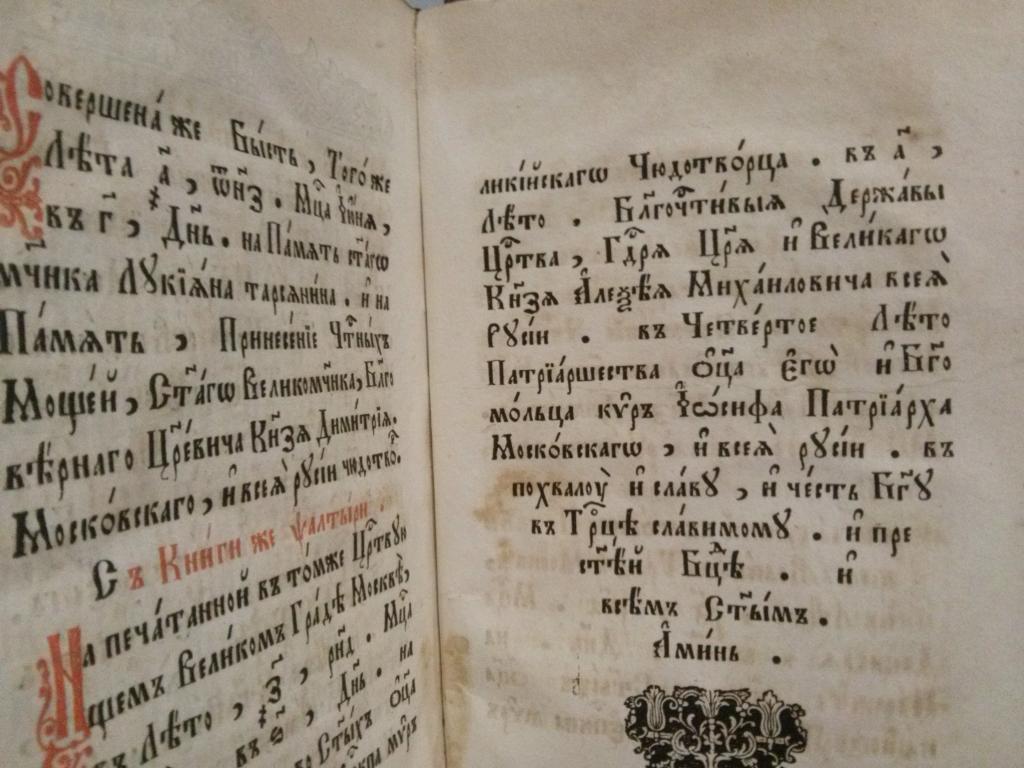 Совершена́ же Бы́сть, Того́ же
Лѣ́та а҃, ҂зр҃нѳ. Мц҃а
въ г҃, Дн҃ь. на Па́мѧть ст҃а́гѡ
мч҃нка Лꙋкїѧ́на тарсѧни́на. и҆ на
Па́мѧть, Принесе́нїе Чⷭ҇тны́хъ
Моще́й, Ст҃а́гѡ Великомч҃нка, Бл҃го
вѣ́рнаго Цр҃е́вича Кн҃зѧ Дими́трїѧ.
Моско́вскаго, и҆ всеѧ̀ рꙋсі́и чюдотво́.
Съ Кни́ги же ѱалты́ри.
На печа́танной въ то́мже Црⷭ҇твꙋи
щемъ Вели́комъ Гра́дѣ Москвѣ̀,
въ Лѣ́то, ҂з҃, рн҃д. Мц҃а
въ, Дн҃ь. на
Ст҃ы́хъ Ѻ҆ц҃а
мѵ́ръ
ликі́йскагѡ Чюдотво́рца. въ а҃,
Лѣ́то. Бл҃гочⷭ҇ти́выѧ Держа́вы
Црⷭ҇тва, Гдⷭ҇рѧ Цр҃ѧ̀ и҆ Вели́кагѡ
Кн҃зѧ А҆леѯѣ́ѧ Миха́иловича всеѧ̀
Рꙋсі́и. въ Четве́ртое Лѣ́то
Патрїа́ршества Ѻ҆ц҃а̀ Е҆гѡ̀ и҆ Бг҃о
мо́льца кѵ́ръ І҆ѡ́сифа Патрїа́рха
Моско́вскагѡ, и҆ всеѧ̀ рꙋсі́и. въ
похвалоу̀ и҆ сла́вꙋ, и҆ че́сть Бг҃ꙋ
въ Трⷪ҇цѣ сла́вимомꙋ. и҆ пре
ст҃ѣ́й Бцⷣѣ. и҆
всѣ́мъ Ст҃ы́мъ.
А҆ми́нь.